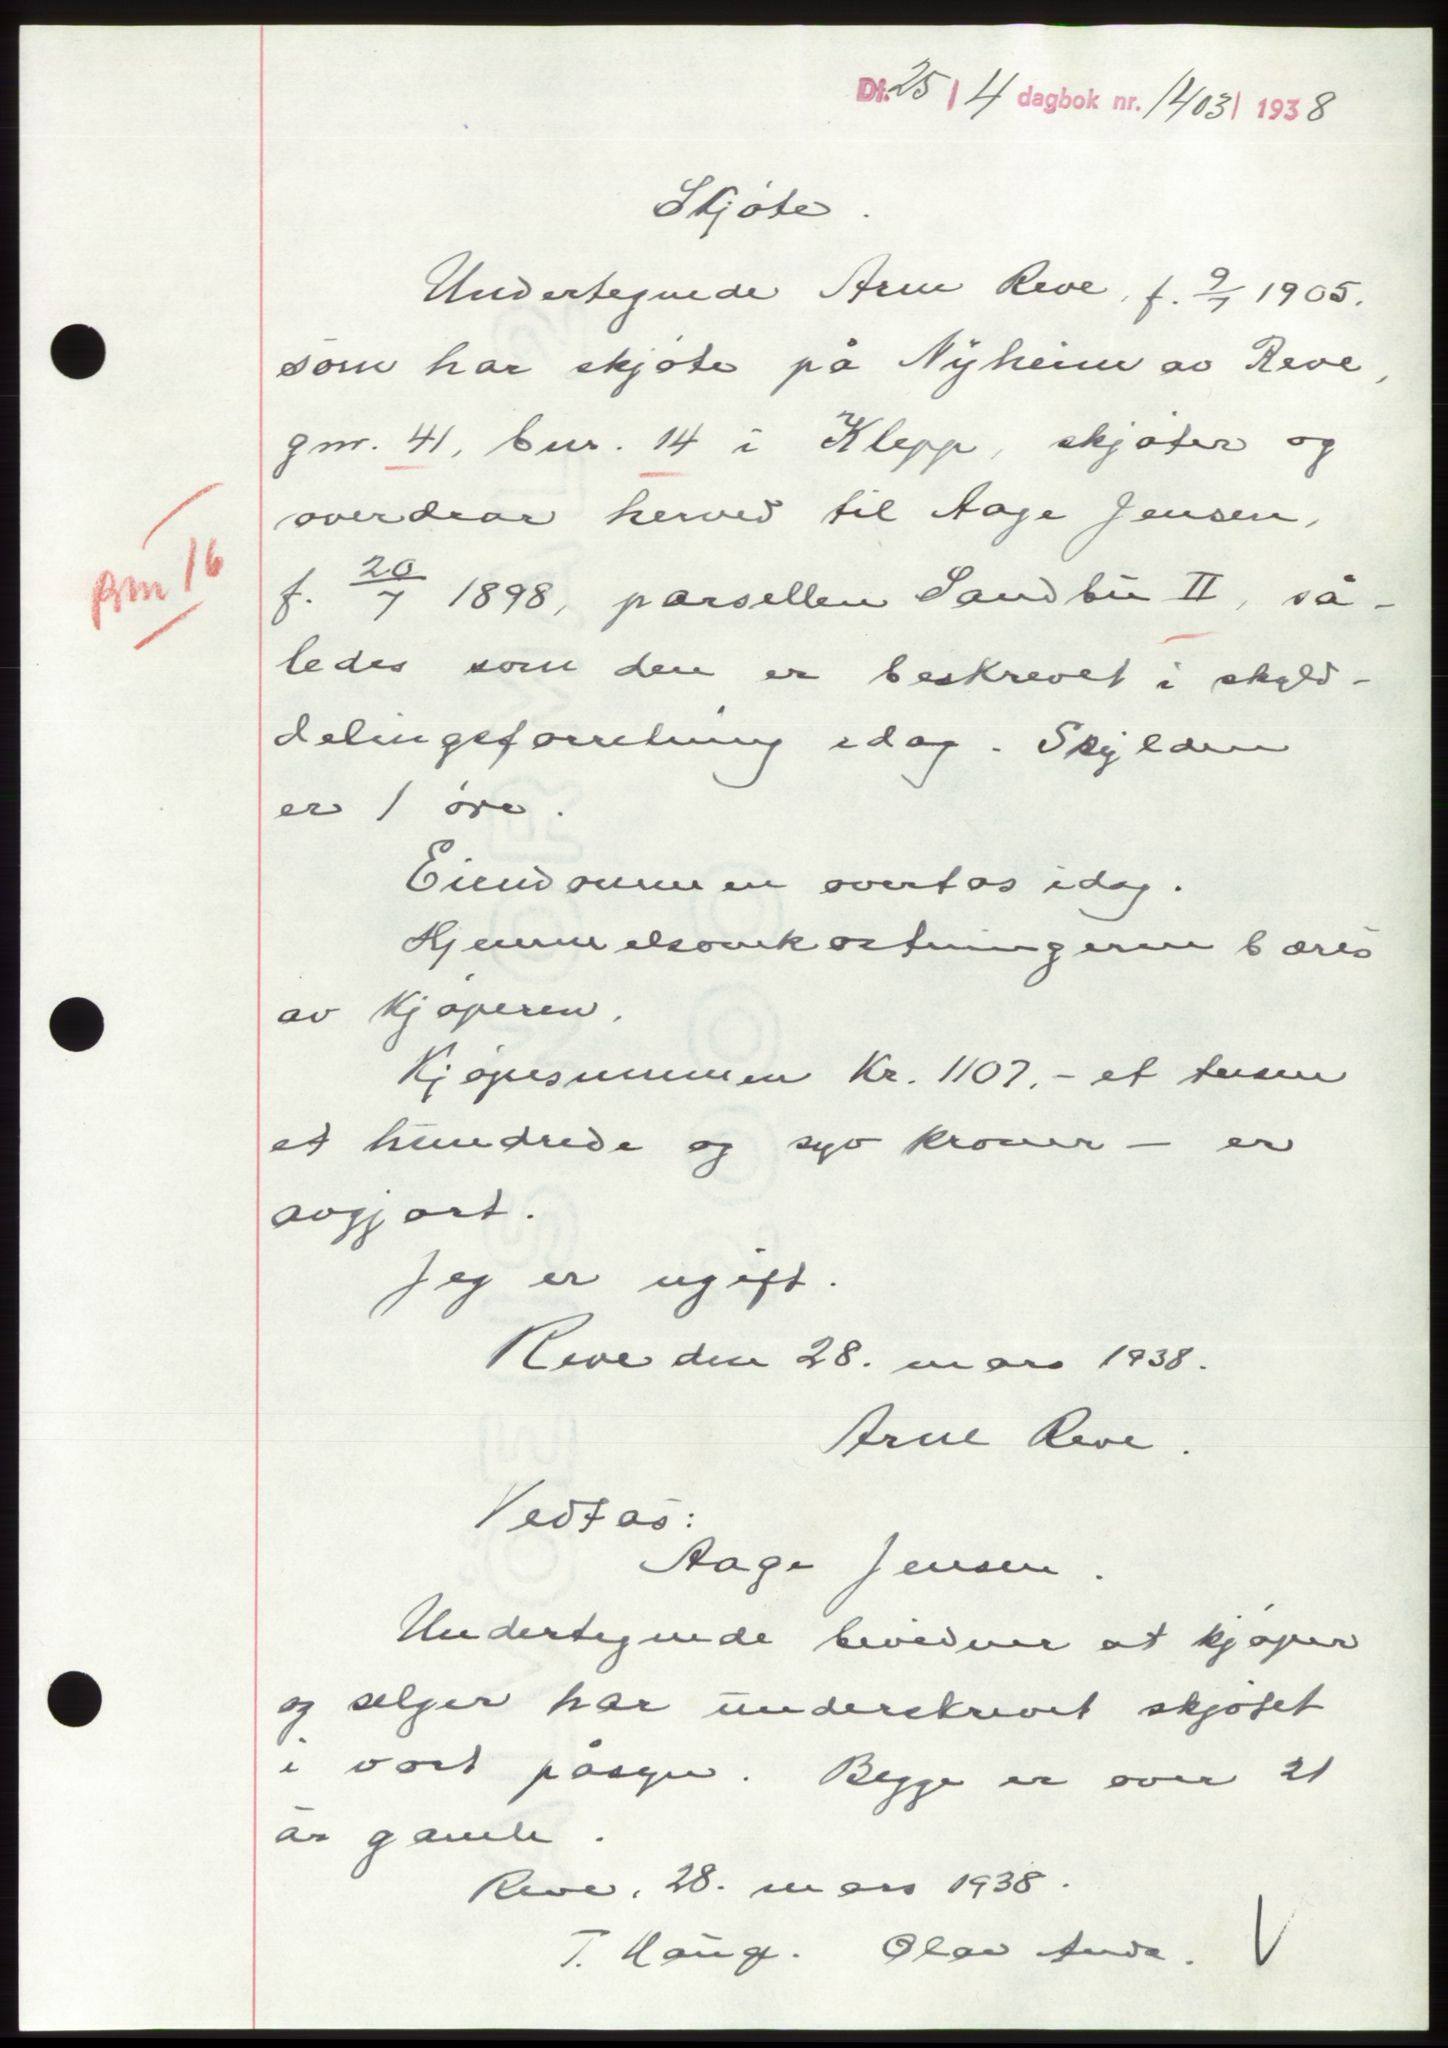 Df. 25 / 4 dagbok nr. 1403 / 1938
Skjøte.
Undertegnede Arne Reve, f. 9/7 1905.
som har skjøte på Nyheim av Reve,
gnr. 41, bnr. 14 i Klepp, skjøter og
overdrar herved til Aage Jensen,
bnr 16
f. 20/7 1898, parsellen Sandbu II, så-
ledes som den er beskrevet i skyld-
delingsforretning idag. Skylden
er 1 øre.
Eiendommen overtas idag.
Hjemmelsomkostningerne bæres
av kjøperen.
Kjøpesummen Kr. 1107.- et tusen
et hundrede og syv kroner - er
avgjort.
Jeg er ugift.
Reve den 28. mars 1938.
Arne Reve.
Vedtas:
Aage Jensen.
Undertegnede bevidner at kjøper
og selger har underskrevet skjøtet
i vort påsyn. Begge er over 21
år gamle.
Reve, 28. mars 1938.
T. Haug. Olav Anda.